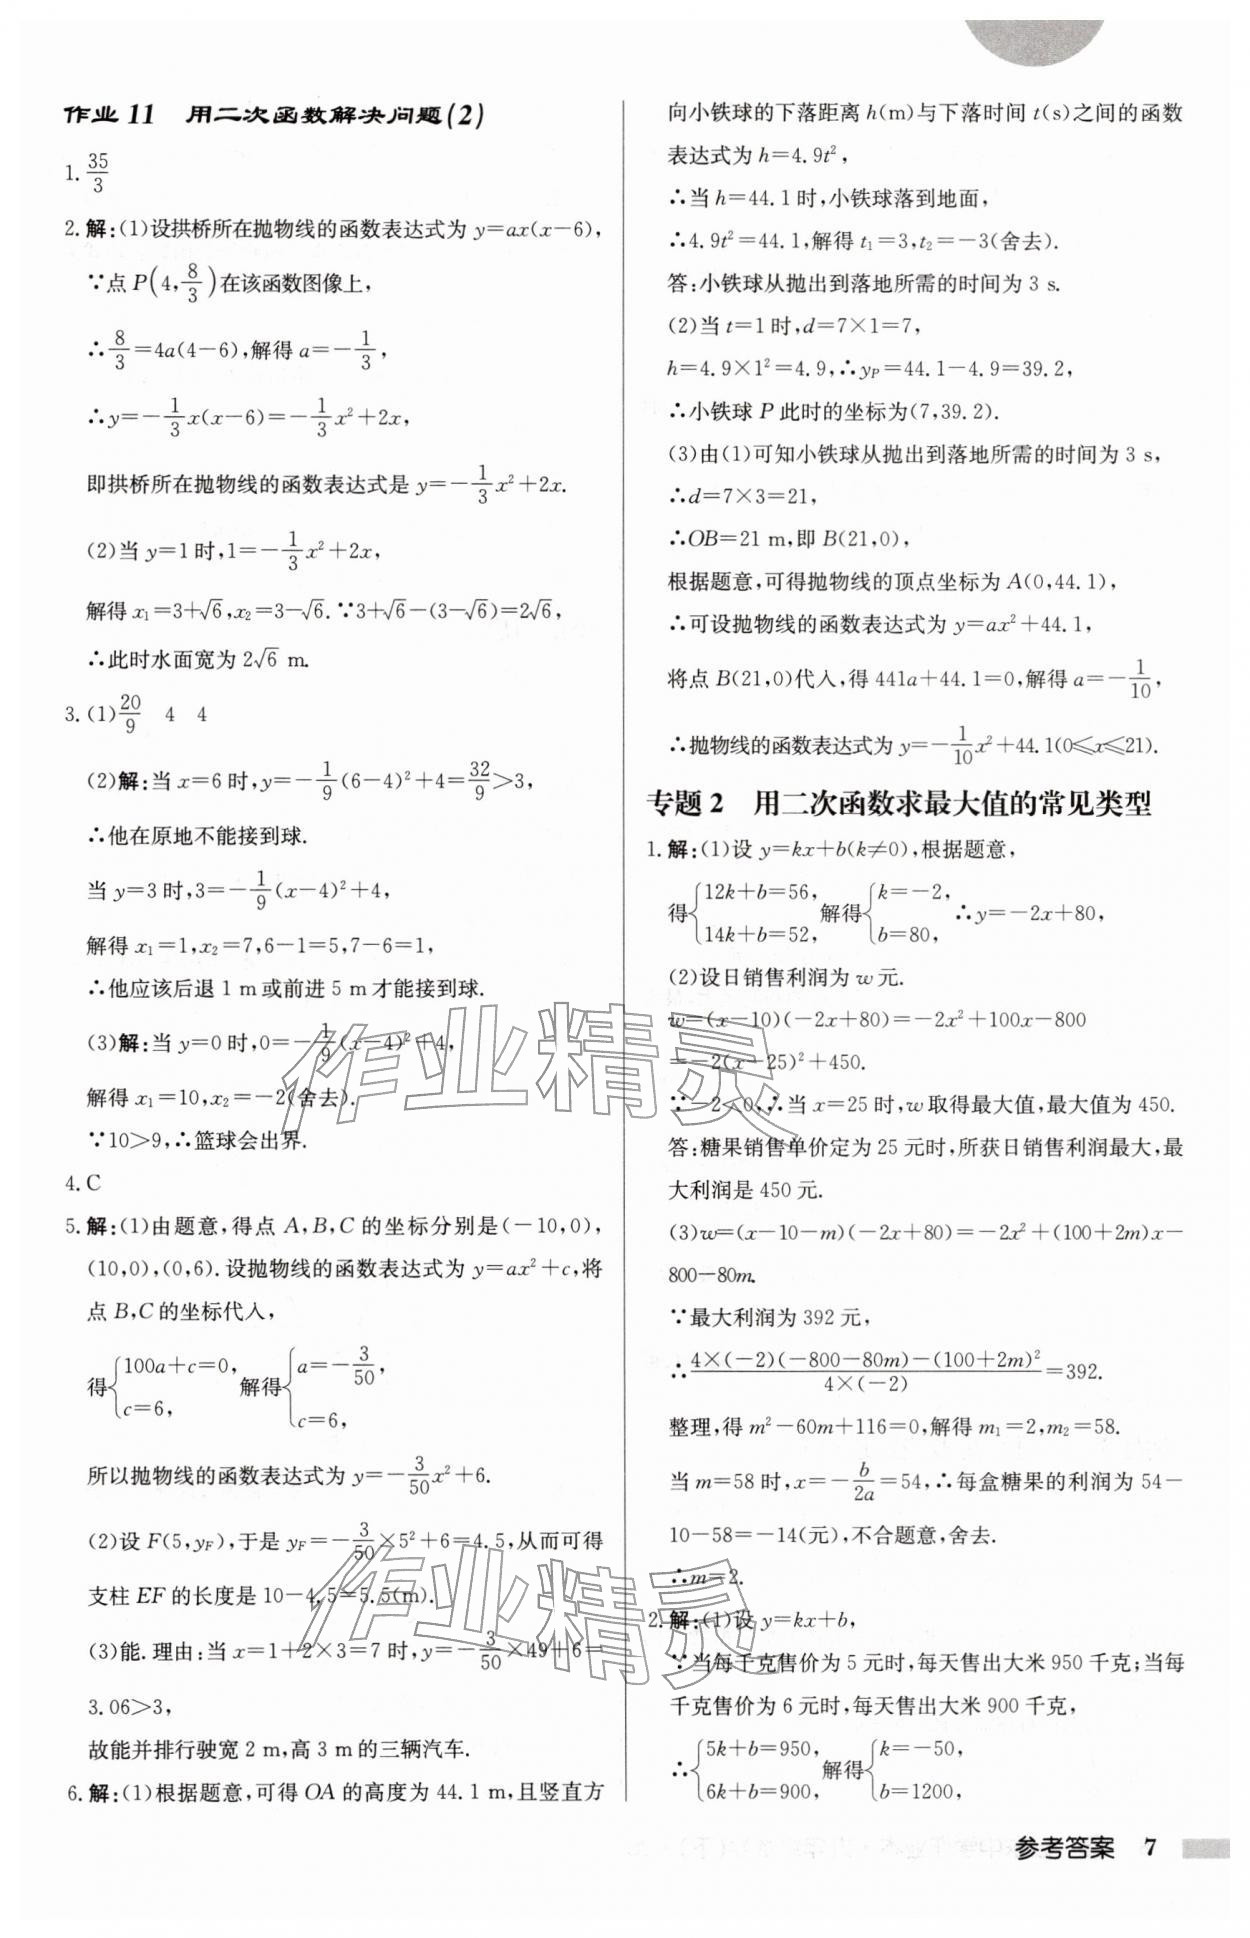 作业11 用二次函数解决问题(2)
1. 35/3
2. 解:(1)设拱桥所在抛物线的函数表达式为 y=ax(x-6),
∵点 P(4,8/3)在该函数图像上,
∴8/3=4a(4-6),解得 a=-1/3,
∴y=-1/3x(x-6)=-1/3x²+2x,
即拱桥所在抛物线的函数表达式是 y=-1/3x²+2x.
(2)当 y=1 时,1=-1/3x²+2x,
解得 x₁=3+√6,x₂=3-√6.∵3+√6-(3-√6)=2√6,
∴此时水面宽为 2√6 m.
3. (1)20/9 4 4
(2)解:当 x=6 时,y=-1/9(6-4)²+4=32/9>3,
∴他在原地不能接到球.
当 y=3 时,3=-1/9(x-4)²+4,
解得 x₁=1,x₂=7,6-1=5,7-6=1,
∴他应该后退 1 m或前进 5 m才能接到球.
(3)解:当 y=0 时,0=-1/9(x-4)²+4,
解得 x₁=10,x₂=-2(舍去).
∵10>9,∴篮球会出界.
4. C
5. 解:(1)由题意,得点 A,B,C 的坐标分别是(-10,0),
(10,0),(0,6).设抛物线的函数表达式为 y=ax²+c,将
点 B,C 的坐标代入,
得{100a+c=0, c=6, 解得{a=-3/50, c=6,
所以抛物线的函数表达式为 y=-3/50x²+6.
(2)设 F(5,y_F),于是 y_F=-3/50×5²+6=4.5,从而可得
支柱 EF 的长度是 10-4.5=5.5(m).
(3)能.理由:当 x=1+2×3=7 时,y=-3/50×49+6=
3.06>3,
故能并排行驶宽 2 m,高 3 m 的三辆汽车.
6. 解:(1)根据题意,可得 OA 的高度为 44.1 m,且竖直方
向小铁球的下落距离 h(m)与下落时间 t(s)之间的函数
表达式为 h=4.9t²,
∴当 h=44.1 时,小铁球落到地面,
∴4.9t²=44.1,解得 t₁=3,t₂=-3(舍去).
答:小铁球从抛出到落地所需的时间为 3 s.
(2)当 t=1 时,d=7×1=7,
h=4.9×1²=4.9,∴y_P=44.1-4.9=39.2,
∴小铁球 P 此时的坐标为(7,39.2).
(3)由(1)可知小铁球从抛出到落地所需的时间为 3 s,
∴d=7×3=21,
∴OB=21 m,即 B(21,0),
根据题意,可得抛物线的顶点坐标为 A(0,44.1),
∴可设抛物线的函数表达式为 y=ax²+44.1,
将点 B(21,0)代入,得 441a+44.1=0,解得 a=-1/10,
∴抛物线的函数表达式为 y=-1/10x²+44.1(0≤x≤21).
专题2 用二次函数求最大值的常见类型
1. 解:(1)设 y=kx+b(k≠0),根据题意,
得{12k+b=56, 14k+b=52, 解得{k=-2, b=80, ∴y=-2x+80,
(2)设日销售利润为 w 元.
w=(x-10)(-2x+80)=-2x²+100x-800
=-2(x-25)²+450.
∵-2<0,∴当 x=25 时,w 取得最大值,最大值为 450.
答:糖果销售单价定为 25 元时,所获日销售利润最大,最
大利润是 450 元.
(3)w=(x-10-m)(-2x+80)=-2x²+(100+2m)x-
800-80m.
∵最大利润为 392 元,
∴4×(-2)(-800-80m)-(100+2m)²/4×(-2)=392.
整理,得 m²-60m+116=0,解得 m₁=2,m₂=58.
当 m=58 时,x=-b/2a=54,∴每盒糖果的利润为 54-
10-58=-14(元),不合题意,舍去.
∴m=2.
2. 解:(1)设 y=kx+b,
∵当每千克售价为 5 元时,每天售出大米 950 千克;当每
千克售价为 6 元时,每天售出大米 900 千克,
∴{5k+b=950, 6k+b=900, 解得{k=-50, b=1200,
参考答案 7
作业精灵
作业精灵